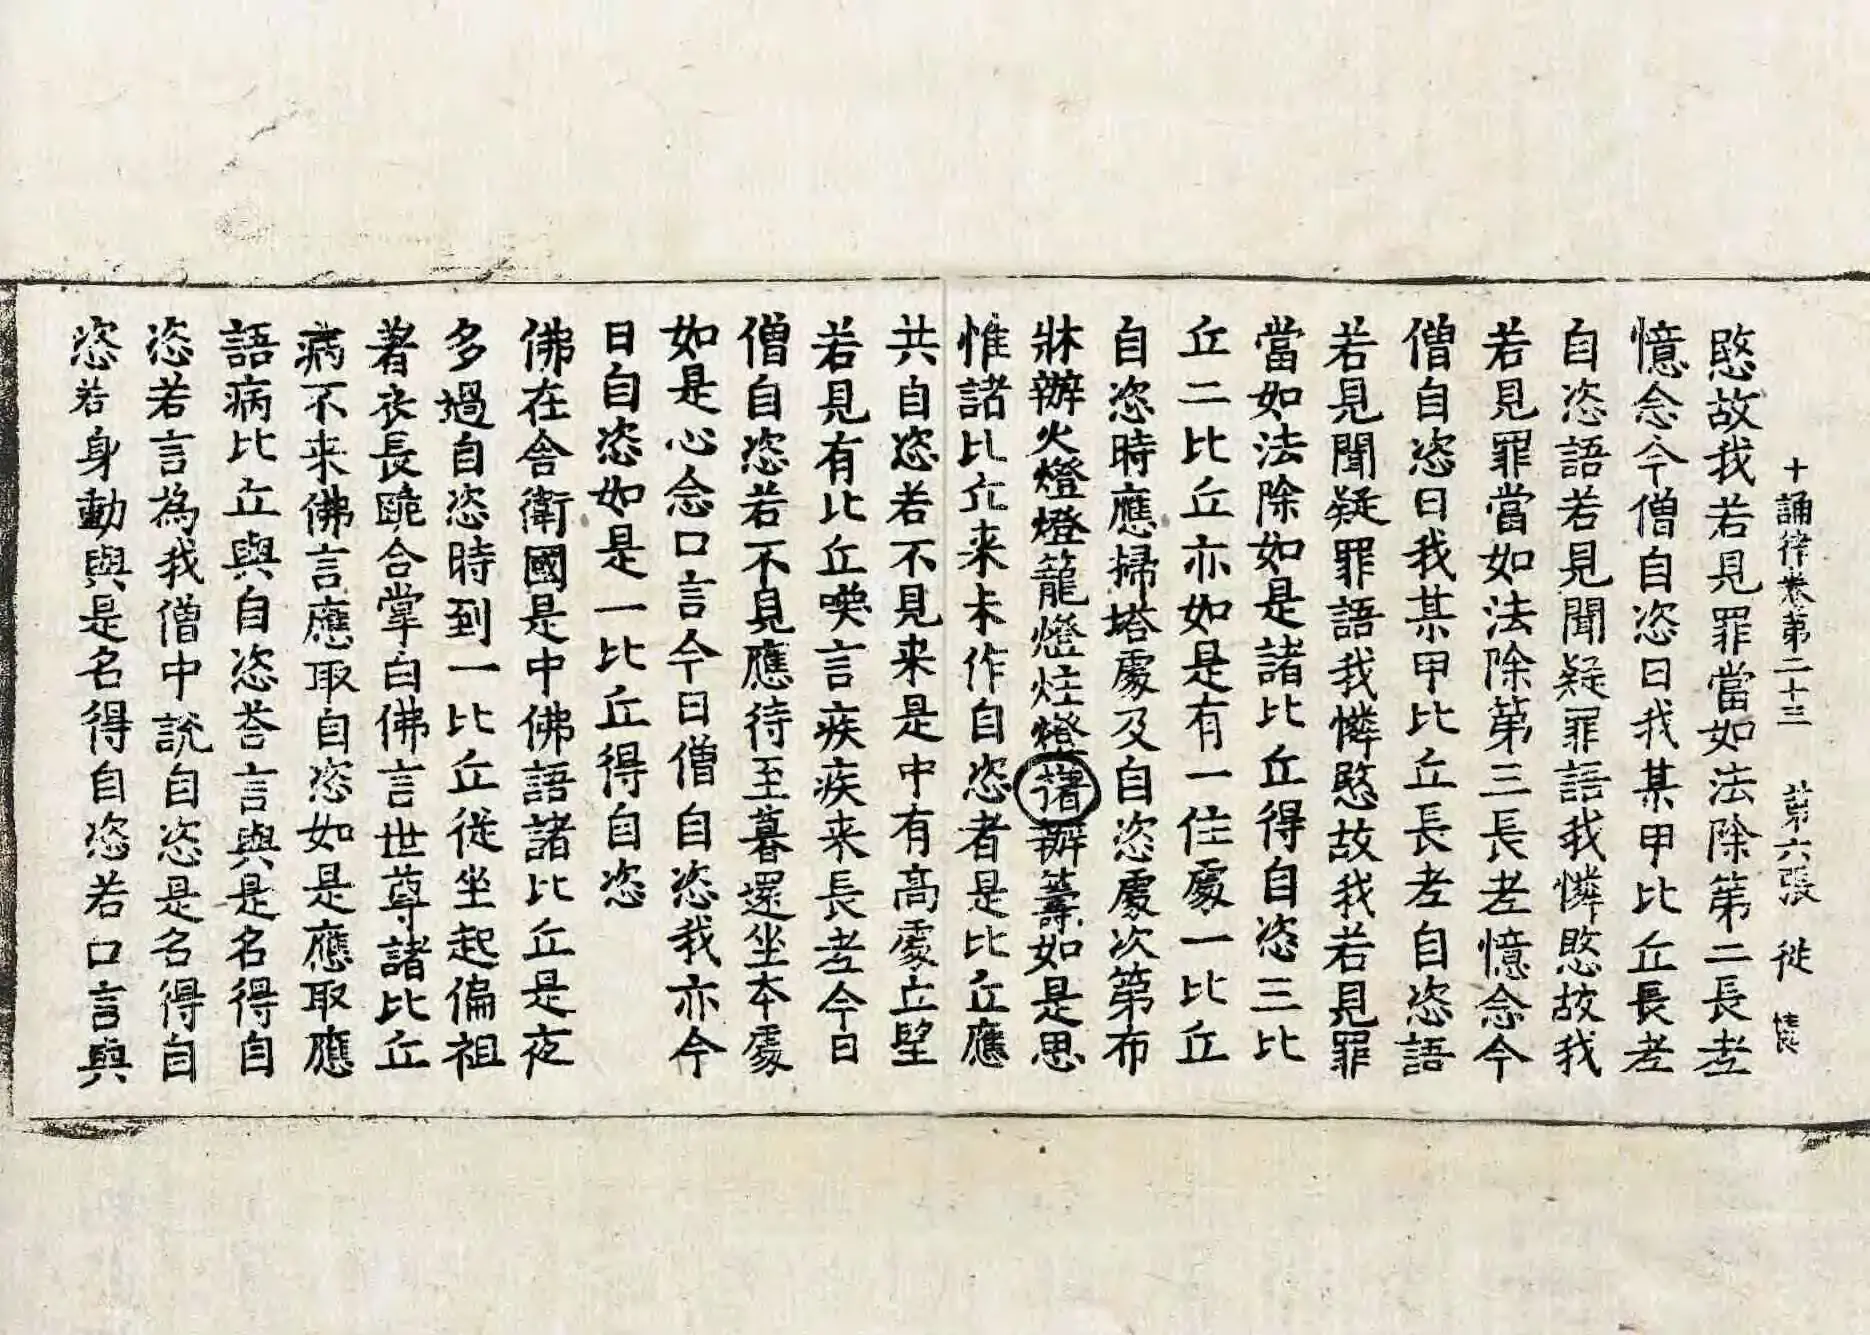 十誦律卷第二十三　第六張　從
愍故我若見罪當如法除第二長老
憶念今僧自恣日我某甲比丘長老
自恣語若見聞疑罪語我憐愍故我
若見罪當如法除第三長老憶念今
僧自恣日我某甲比丘長老自恣語
若見聞疑罪語我憐愍故我若見罪
當如法除如是諸比丘得自恣三比
丘二比丘亦如是有一住處一比丘
自恣時應掃塔處及自恣處次第布
牀辦火燈燈籠燈炷燈辦籌如是思
惟諸比丘来未作自恣者是比丘應
共自恣若不見来是中有高處立望
若見有比丘喚言疾疾来長老今日
僧自恣若不見應待至暮還坐本處
如是心念口言今日僧自恣我亦今
日自恣如是一比丘得自恣
佛在舍衛國是中佛語諸比丘是夜
多過自恣時到一比丘從坐起偏袒
著衣長跪合掌白佛言世尊諸比丘
病不来佛言應取自恣如是應取應
語病比丘與自恣荅言與是名得自
恣若言為我僧中説自恣是名得自
恣若身動與是名得自恣若口言與